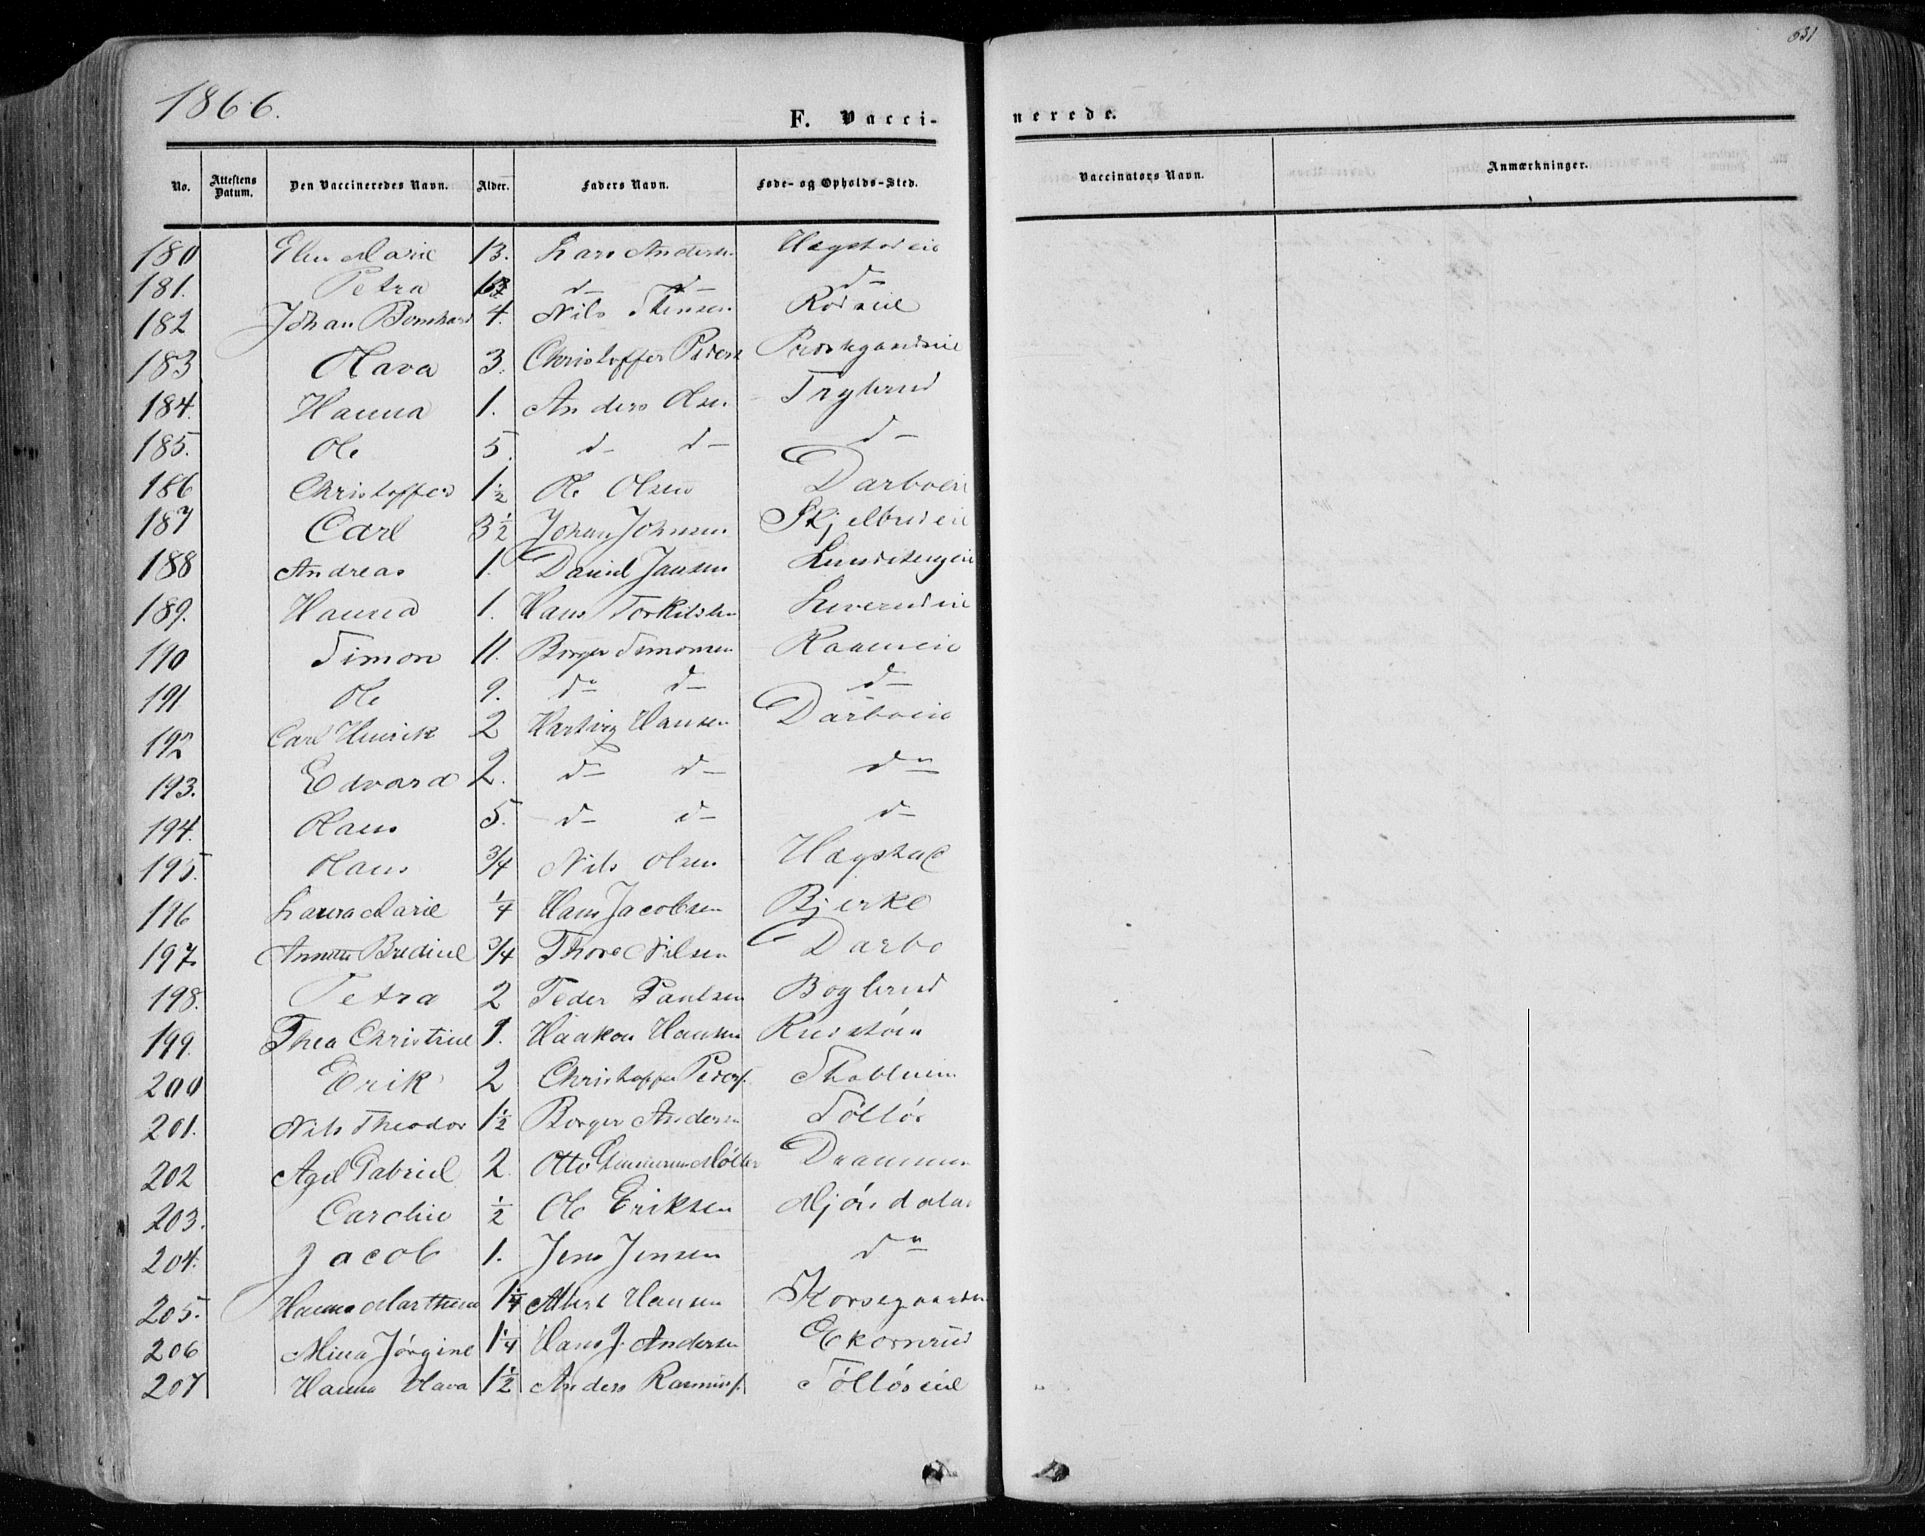 1866.
631
F. Vacci-
nerede.
No. Attestens Datum. Den Vaccineredes Navn. Alder. Faders Navn. Føde- og Opholds-Sted. Vaccinators Navn. Anmærkninger.
180 Elen Marie 13. Lars Andersen Hægstadeie
181. Petra d– d– d–
182 Johan Bernhard 4. Nils
183 Olava 3. Christoffer Peders Præstegaardseie
184. Hanna 1. Anders Olsen Tryterud
185. Ole 5. d– d– d–
186 Christoffer 1½ Ole Olsen Darboeie
187 Carl 3½ Johan Johnsen Skjelbredeie
188 Andreas 1. Daniel Jansen
189. Hanna 1. Hans Torkilsen Leverudeie
190 Simon 11. Borger Simonsen Kaaneeie
191 Ole 9. do d– d–
192 Carl Henrik 2 Hartvig Hansen Darboeie
193. Edvard 2. d– d– do
194. Hans 5. d– d– d–
195. Hans 3/4 Nils Olsen Hægstad
196 Laura Marie ¼ Hans Jacobsen Bjerke
197. Annette Bredine 3/4 Thore Nilsen Darbo
198. Petra 2 Peder Paulsen Boglerud
199. Thea Christine 1. Haakon Hansen
200 Erik 2 Christoffer Peders.
201. Nils Theodor 1½ Borger Andersen Løkløs
202 Axel Gabriel 2. Otto Møller Drammen
203. Caroline ½ Ole Eriksen Mjøndalen
204. Jacob 1. Jens Jensen do
205. Hanna Marthina 1¼ Albert Hansen Korsegaarden
206 Mina Jørgine 1¼ Hans J. Andersen Ekornrud
207 Hanna Olava 1½ Anders Rasmus.